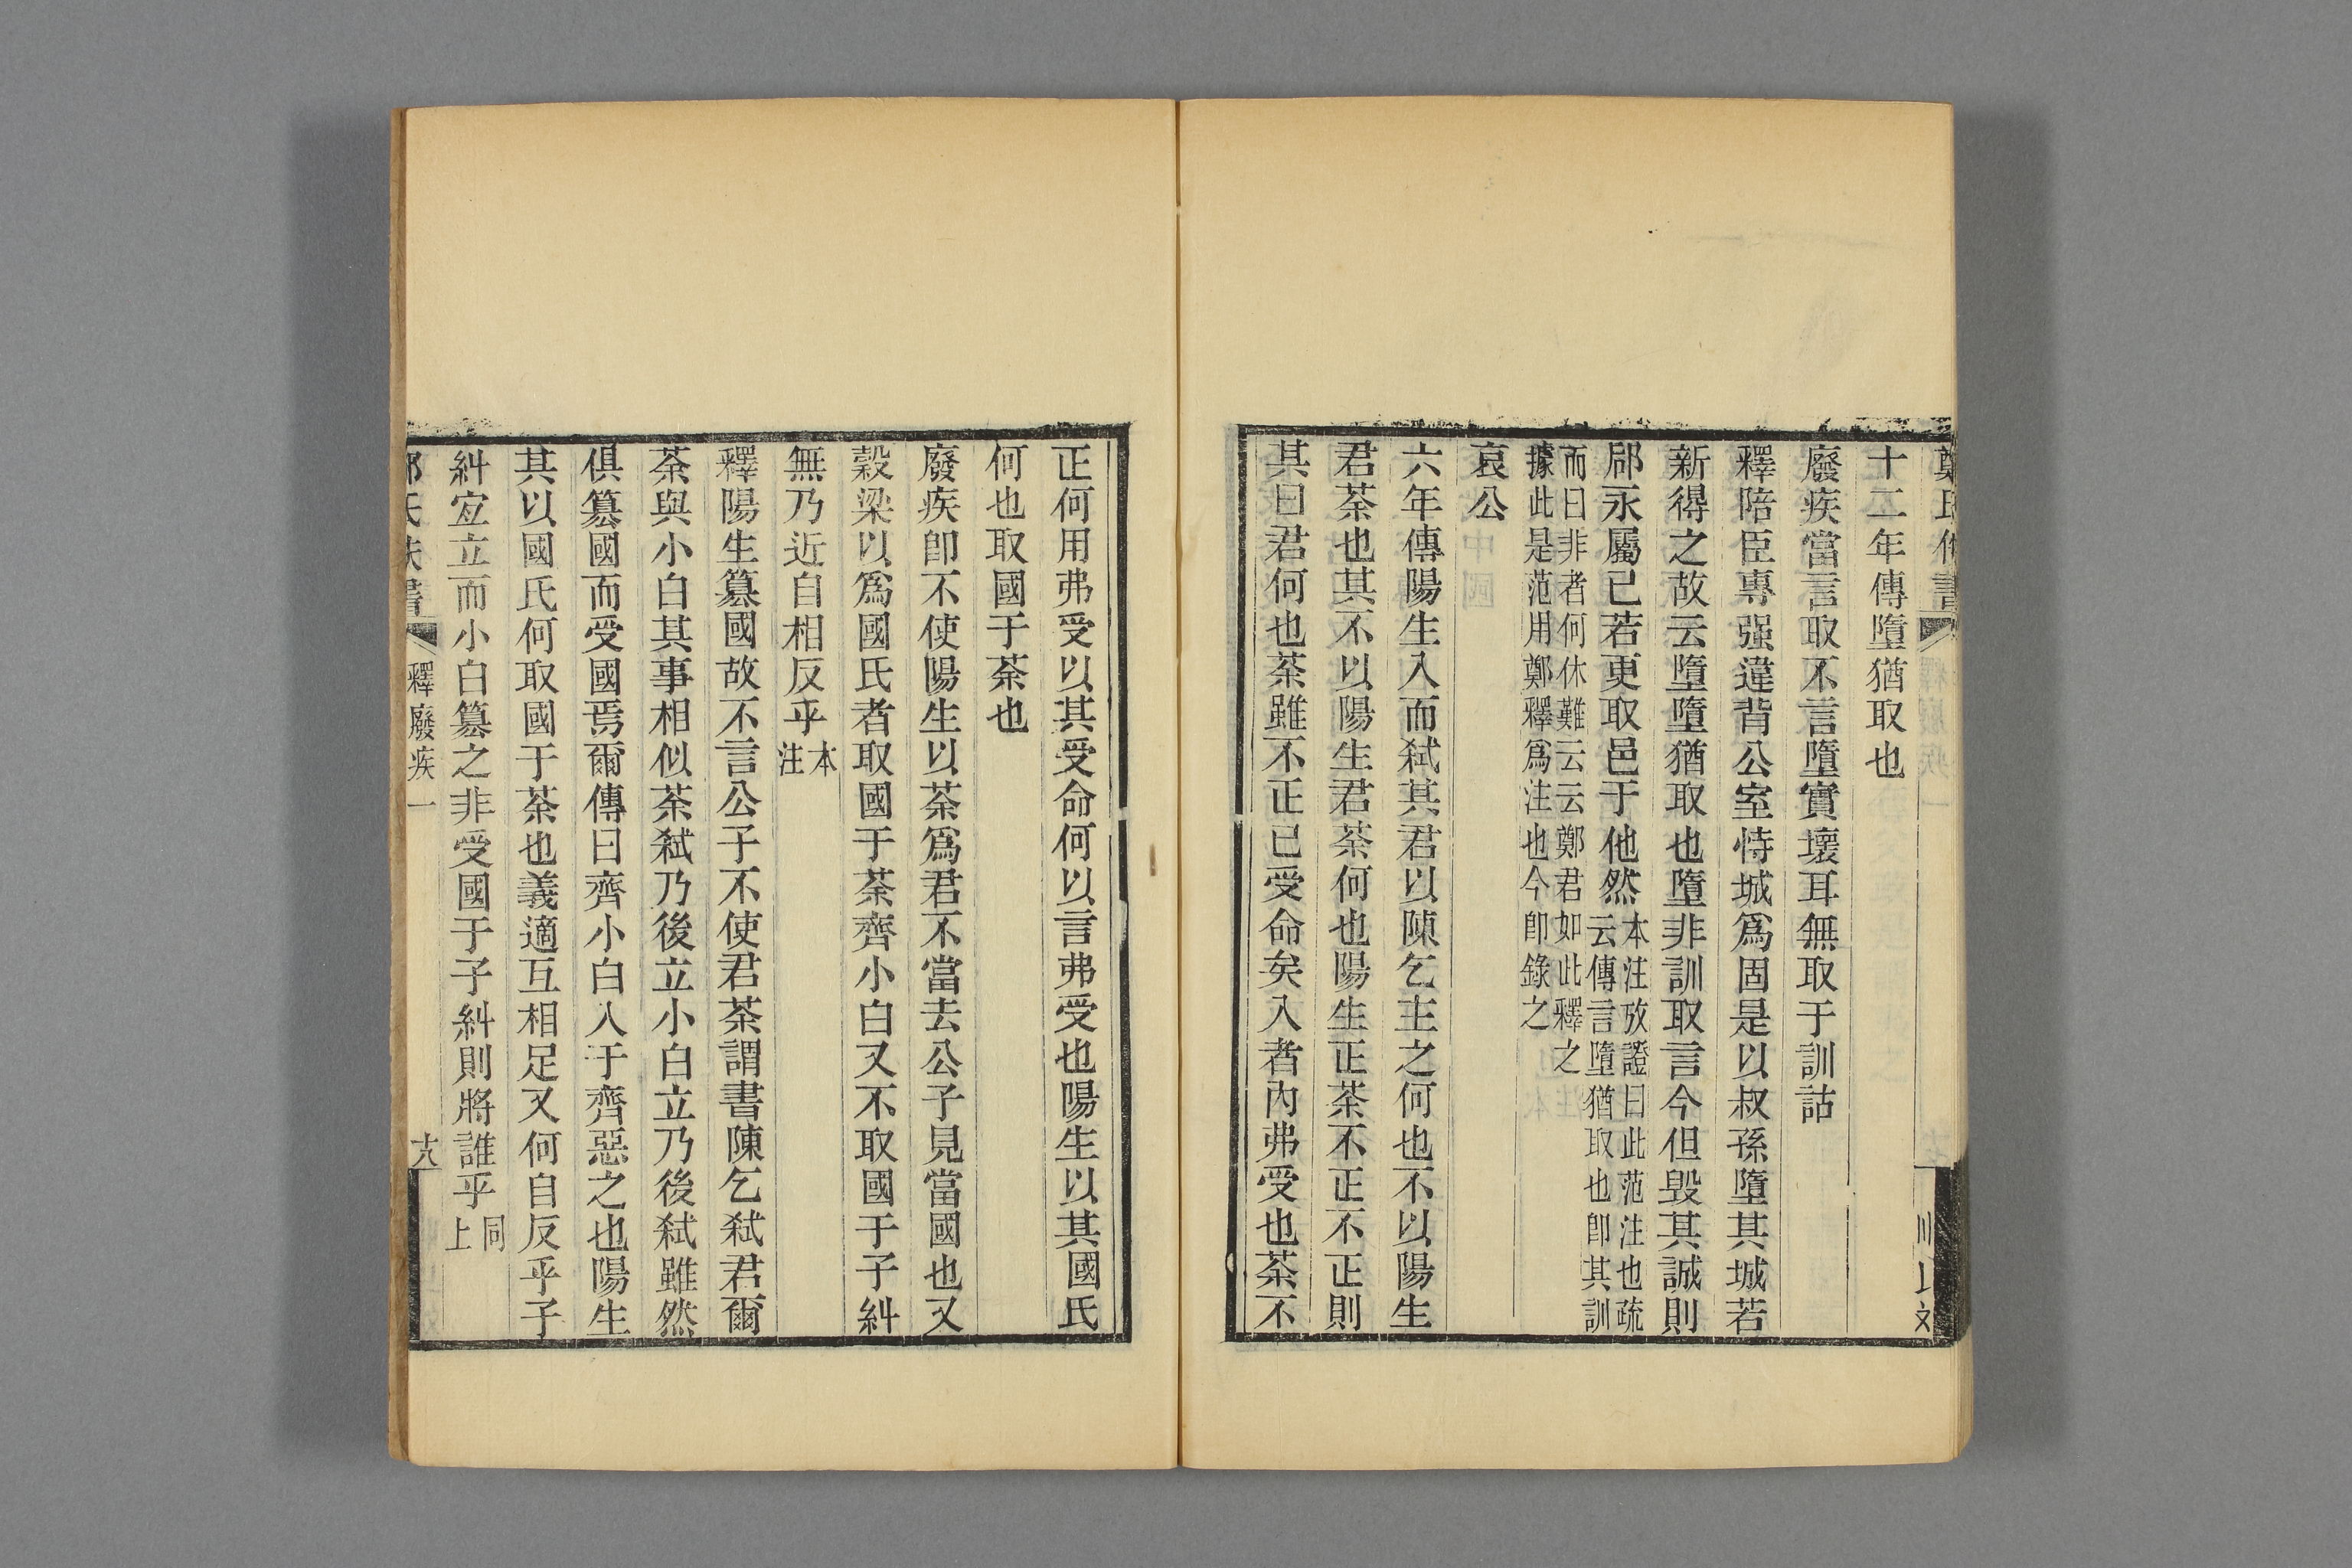 十二年傳墮猶取也
廢疾當言取不言墮實壞耳無取于訓詁
釋陪臣專强違背公室恃城爲固是以叔孫墮其城若
新得之故云墮墮猶取也墮非訓取言今但毁其誠則
郈永屬已若更取邑于他然本注攷證曰此范注也疏
云傳言墮猶取也卽其訓
而曰非者何休難云云鄭君如此釋之
據此是范用鄭釋爲注也今卽錄之
哀公
六年傳陽生入而弑其君以陳乞主之何也不以陽生
君荼也其不以陽生君荼何也陽生正荼不正不正則
其曰君何也荼雖不正已受命矣入者內弗受也荼不
正何用弗受以其受命何以言弗受也陽生以其國氏
何也取國于荼也
廢疾卽不使陽生以荼爲君不當去公子見當國也又
穀梁以爲國氏者取國于荼齊小白又不取國于子糾
無乃近自相反乎本
注
釋陽生篡國故不言公子不使君荼謂書陳乞弑君爾
荼與小白其事相似荼弑乃後立小白立乃後弑雖然
俱篡國而受國焉爾傳曰齊小白入于齊惡之也陽生
其以國氏何取國于荼也義適互相足又何自反乎子
糾宐立而小白篡之非受國于子糾則將誰乎同
上
釋廢疾一
十八